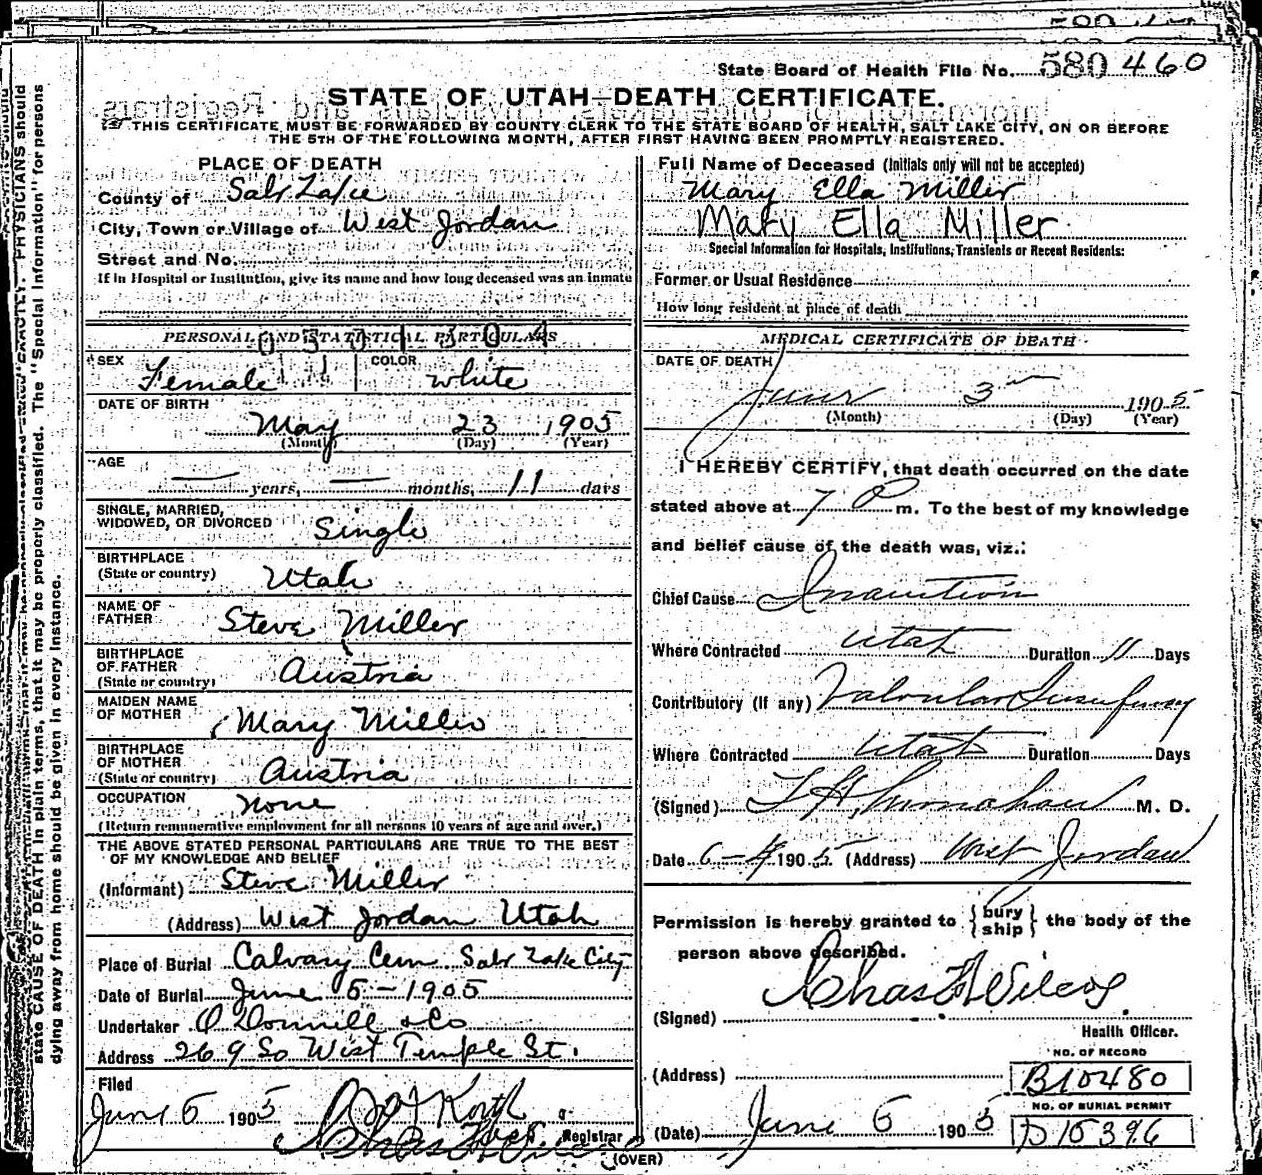 State Board of Health File No. 580460
STATE OF UTAH—DEATH CERTIFICATE.
THIS CERTIFICATE MUST BE FORWARDED BY COUNTY CLERK TO THE STATE BOARD OF HEALTH, SALT LAKE CITY, ON OR BEFORE
THE 5TH OF THE FOLLOWING MONTH, AFTER FIRST HAVING BEEN PROMPTLY REGISTERED.
PHYSICIANS should
state CAUSE OF DEATH in plain terms, that it may be properly classified. The "Special Information" for persons
dying away from home should be given in every instance.
PLACE OF DEATH
County of Salt Lake
City, Town or Village of West Jordan
Street and No.
If in Hospital or Institution, give its name and how long deceased was an inmate
PERSONAL AND STATISTICAL PARTICULARS
SEX Female
COLOR white
DATE OF BIRTH
May 23 1905
(Month) (Day) (Year)
AGE
— years, — months, 11 days
SINGLE, MARRIED,
WIDOWED, OR DIVORCED Single
BIRTHPLACE
(State or country) Utah
NAME OF
FATHER Steve Miller
BIRTHPLACE
OF FATHER
(State or country) Austria
MAIDEN NAME
OF MOTHER Mary Miller
BIRTHPLACE
OF MOTHER
(State or country) Austria
OCCUPATION None
(Return remunerative employment for all persons 10 years of age and over.)
THE ABOVE STATED PERSONAL PARTICULARS ARE TRUE TO THE BEST
OF MY KNOWLEDGE AND BELIEF
(Informant) Steve Miller
(Address) West Jordan Utah
Place of Burial Calvary Cem. Salt Lake City
Date of Burial June 5-1905
Undertaker O'Donnell & Co
Address 269 So West Temple St.
Filed
June 6 1905
Registrar
Full Name of Deceased (Initials only will not be accepted)
Mary Ella Miller
Mary Ella Miller
Special Information for Hospitals, Institutions, Transients or Recent Residents:
Former or Usual Residence
How long resident at place of death
MEDICAL CERTIFICATE OF DEATH
DATE OF DEATH
June 3 1905
(Month) (Day) (Year)
I HEREBY CERTIFY, that death occurred on the date
stated above at 7 P m. To the best of my knowledge
and belief cause of the death was, viz.:
Chief Cause Inanition
Where Contracted Utah Duration 11 Days
Contributory (If any) Valvular Insufficiency
Where Contracted Utah Duration Days
(Signed) M. D.
Date 6-4 1905 (Address) West Jordan
Permission is hereby granted to {bury
ship} the body of the
person above described.
(Signed) Chas F Wilcox
Health Officer.
(Address)
NO. OF RECORD
B10480
NO. OF BURIAL PERMIT
(Date) June 6 1905
D15396
(OVER)